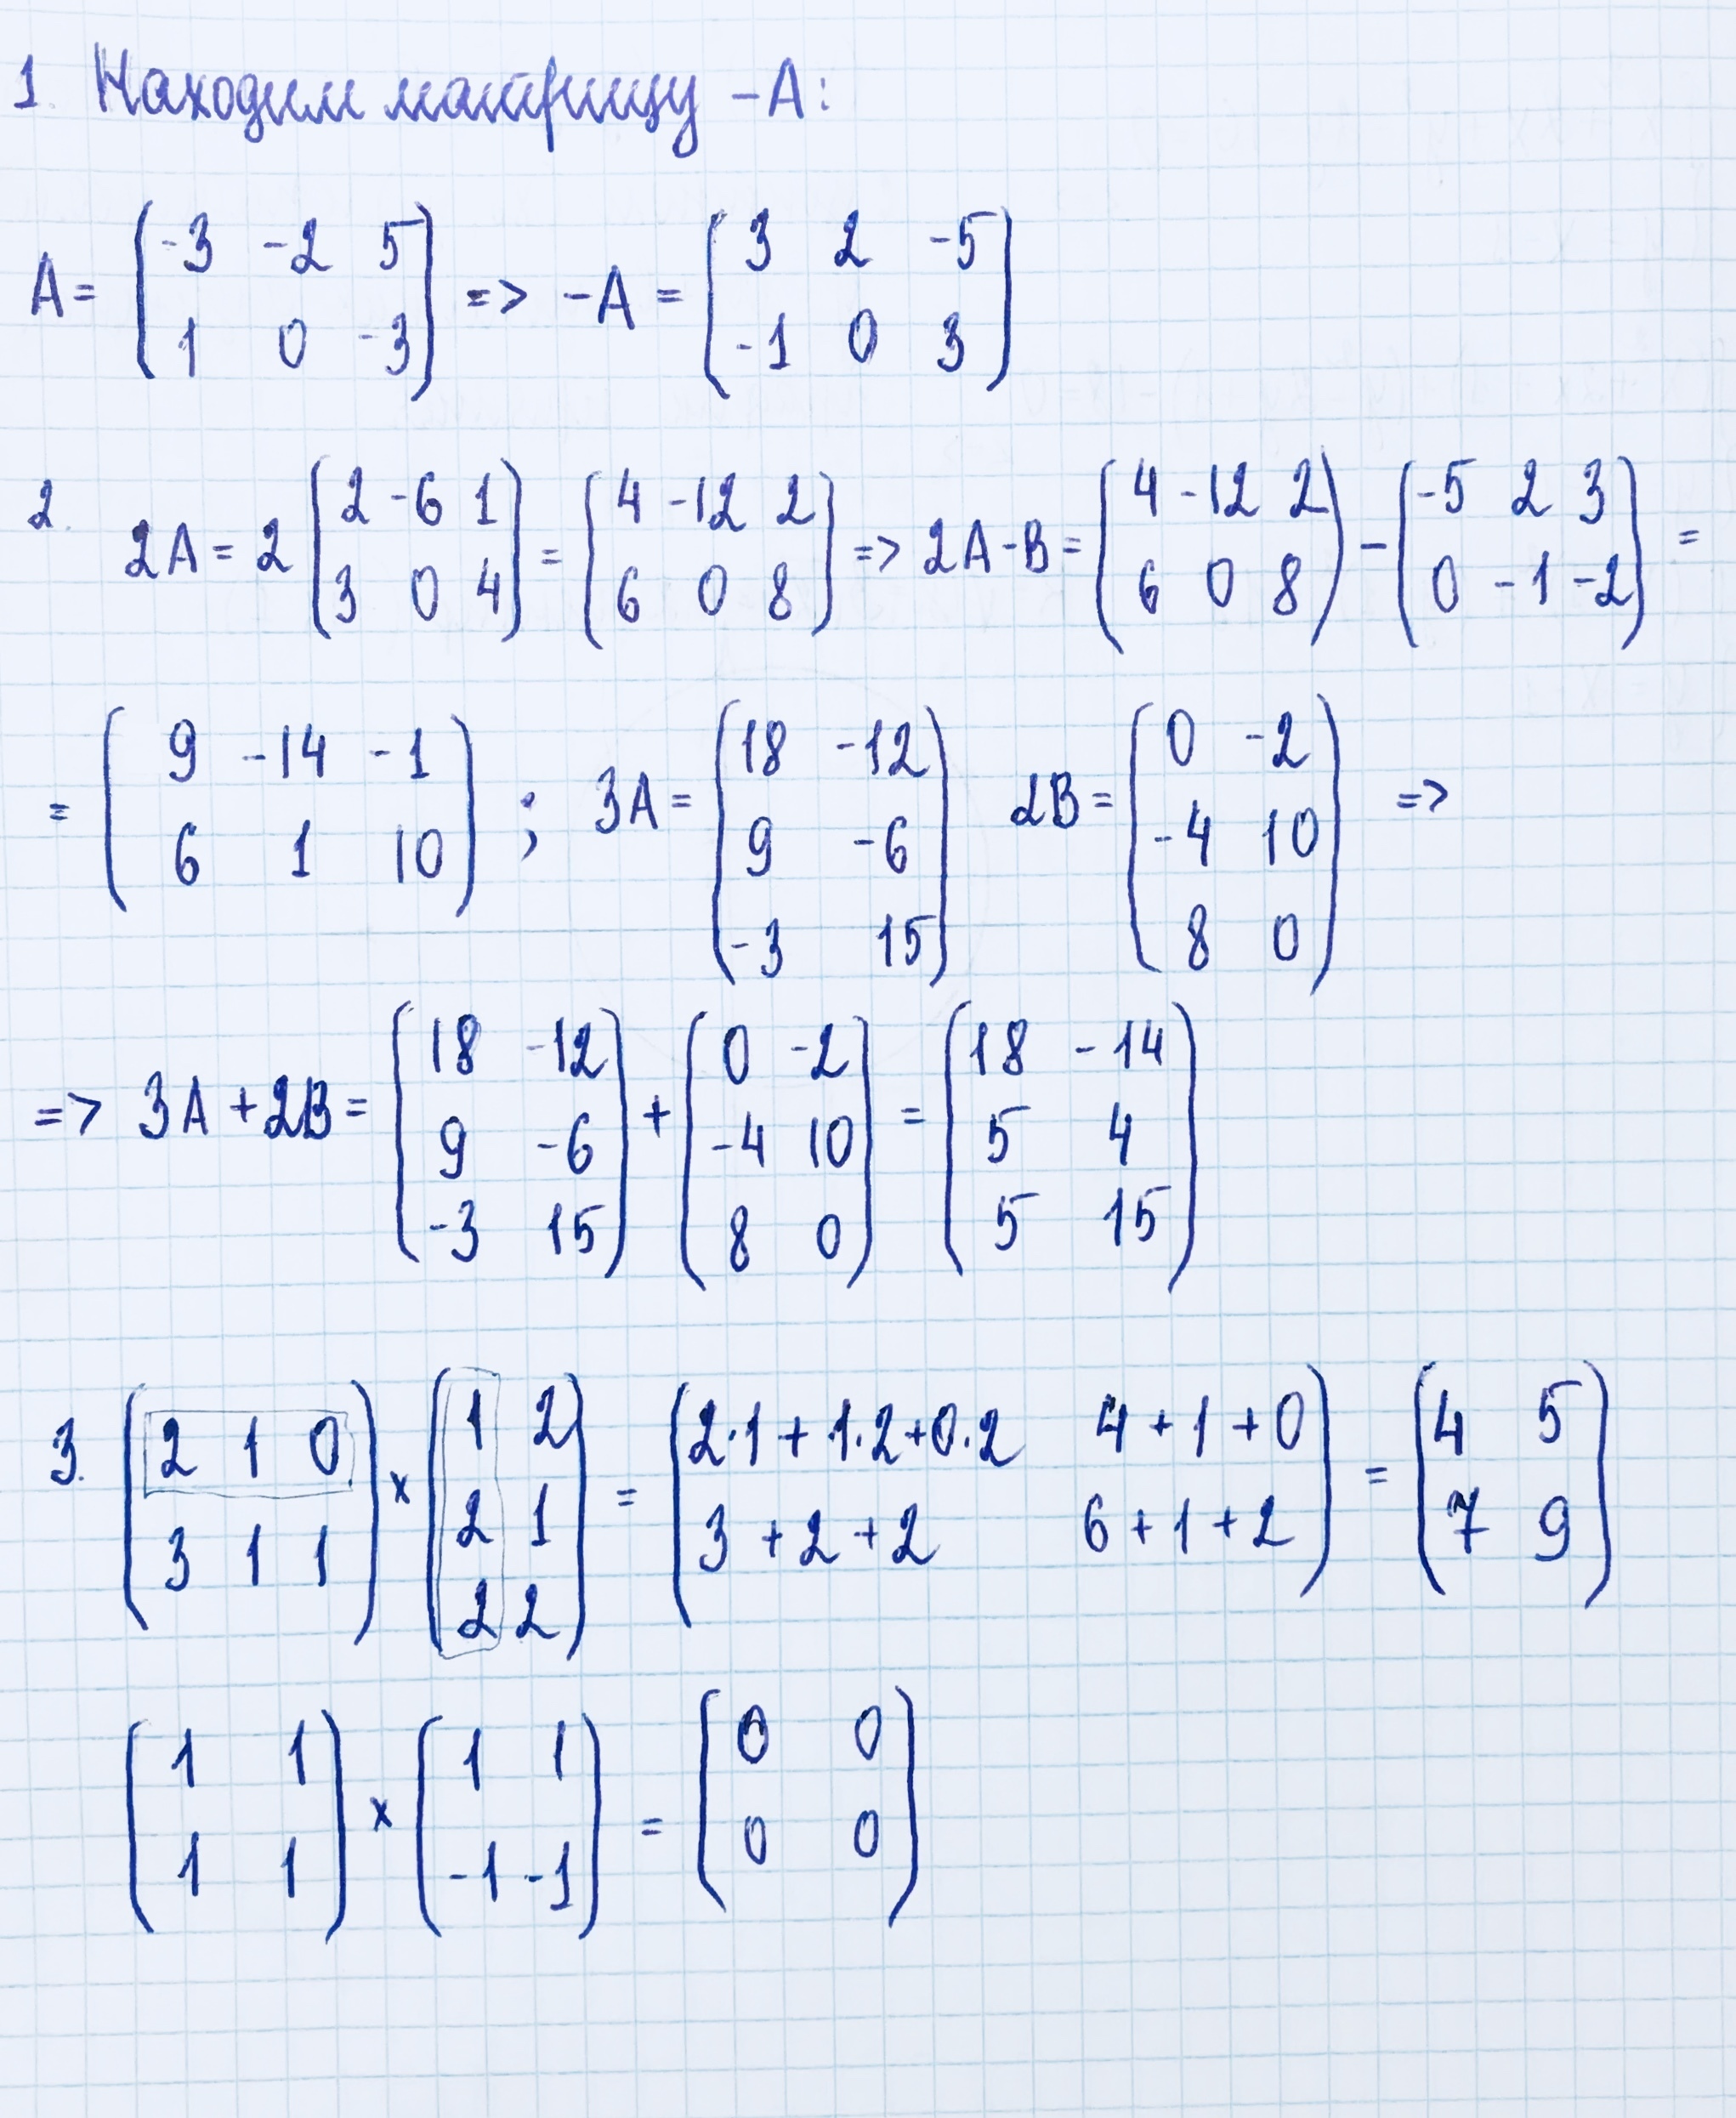 1. Находим матрицу -A:
A = ( -3 -2 5 ; 1 0 -3 ) => -A = ( 3 2 -5 ; -1 0 3 )
2. 2A = 2 ( 2 -6 1 ; 3 0 4 ) = ( 4 -12 2 ; 6 0 8 ) => 2A-B = ( 4 -12 2 ; 6 0 8 ) - ( -5 2 3 ; 0 -1 -2 ) =
= ( 9 -14 -1 ; 6 1 10 ) ; 3A = ( 18 -12 ; 9 -6 ; -3 15 ) 2B = ( 0 -2 ; -4 10 ; 8 0 ) =>
=> 3A + 2B = ( 18 -12 ; 9 -6 ; -3 15 ) + ( 0 -2 ; -4 10 ; 8 0 ) = ( 18 -14 ; 5 4 ; 5 15 )
3. ( 2 1 0 ; 3 1 1 ) x ( 1 2 ; 2 1 ; 2 2 ) = ( 2·1 + 1·2 + 0·2 4 + 1 + 0 ; 3 + 2 + 2 6 + 1 + 2 ) = ( 4 5 ; 7 9 )
( 1 1 ; 1 1 ) x ( 1 1 ; -1 -1 ) = ( 0 0 ; 0 0 )